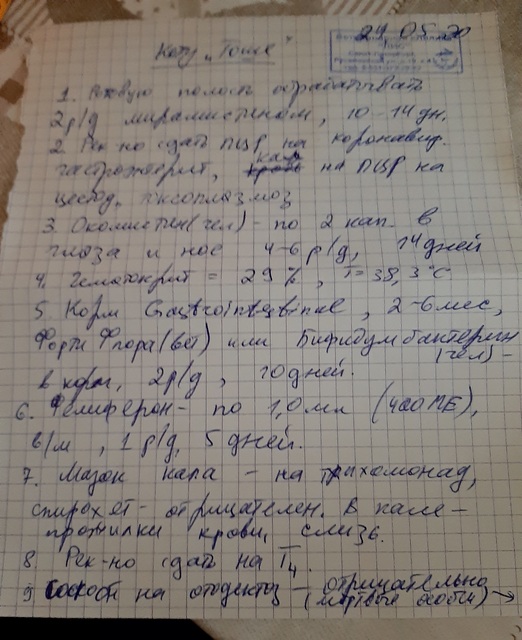 24 05 20
Коту „Тоше"
1. Ротовую полость обрабатывать
2р/д мирамистином, 10-14 дн.
2. Рек-но сдать ПЦР на коронавир.
гастроэнтерит, кал на ПЦР на
цестод, токсоплазмоз
3. Окомистин (чел) - по 2 кап. в
глаза и нос 4-6 р/д, 14 дней
4. Гематокрит = 29 %, T = 38,3 °C
5. Корм Gastrointestinal, 2-6 мес,
Форти Флора (вет) или Бифидумбактерин
(чел) -
в корм, 2р/д, 10 дней.
6. Фелиферон - по 1,0 мл (400 МЕ),
в/м, 1 р/д, 5 дней.
7. Мазок кала - на трихомонад,
спирохет - отрицателен. В кале -
прожилки крови, слизь.
8. Рек-но сдать на T4.
9 Соскоб на отодектоз - отрицательно
(мертвые особи) →